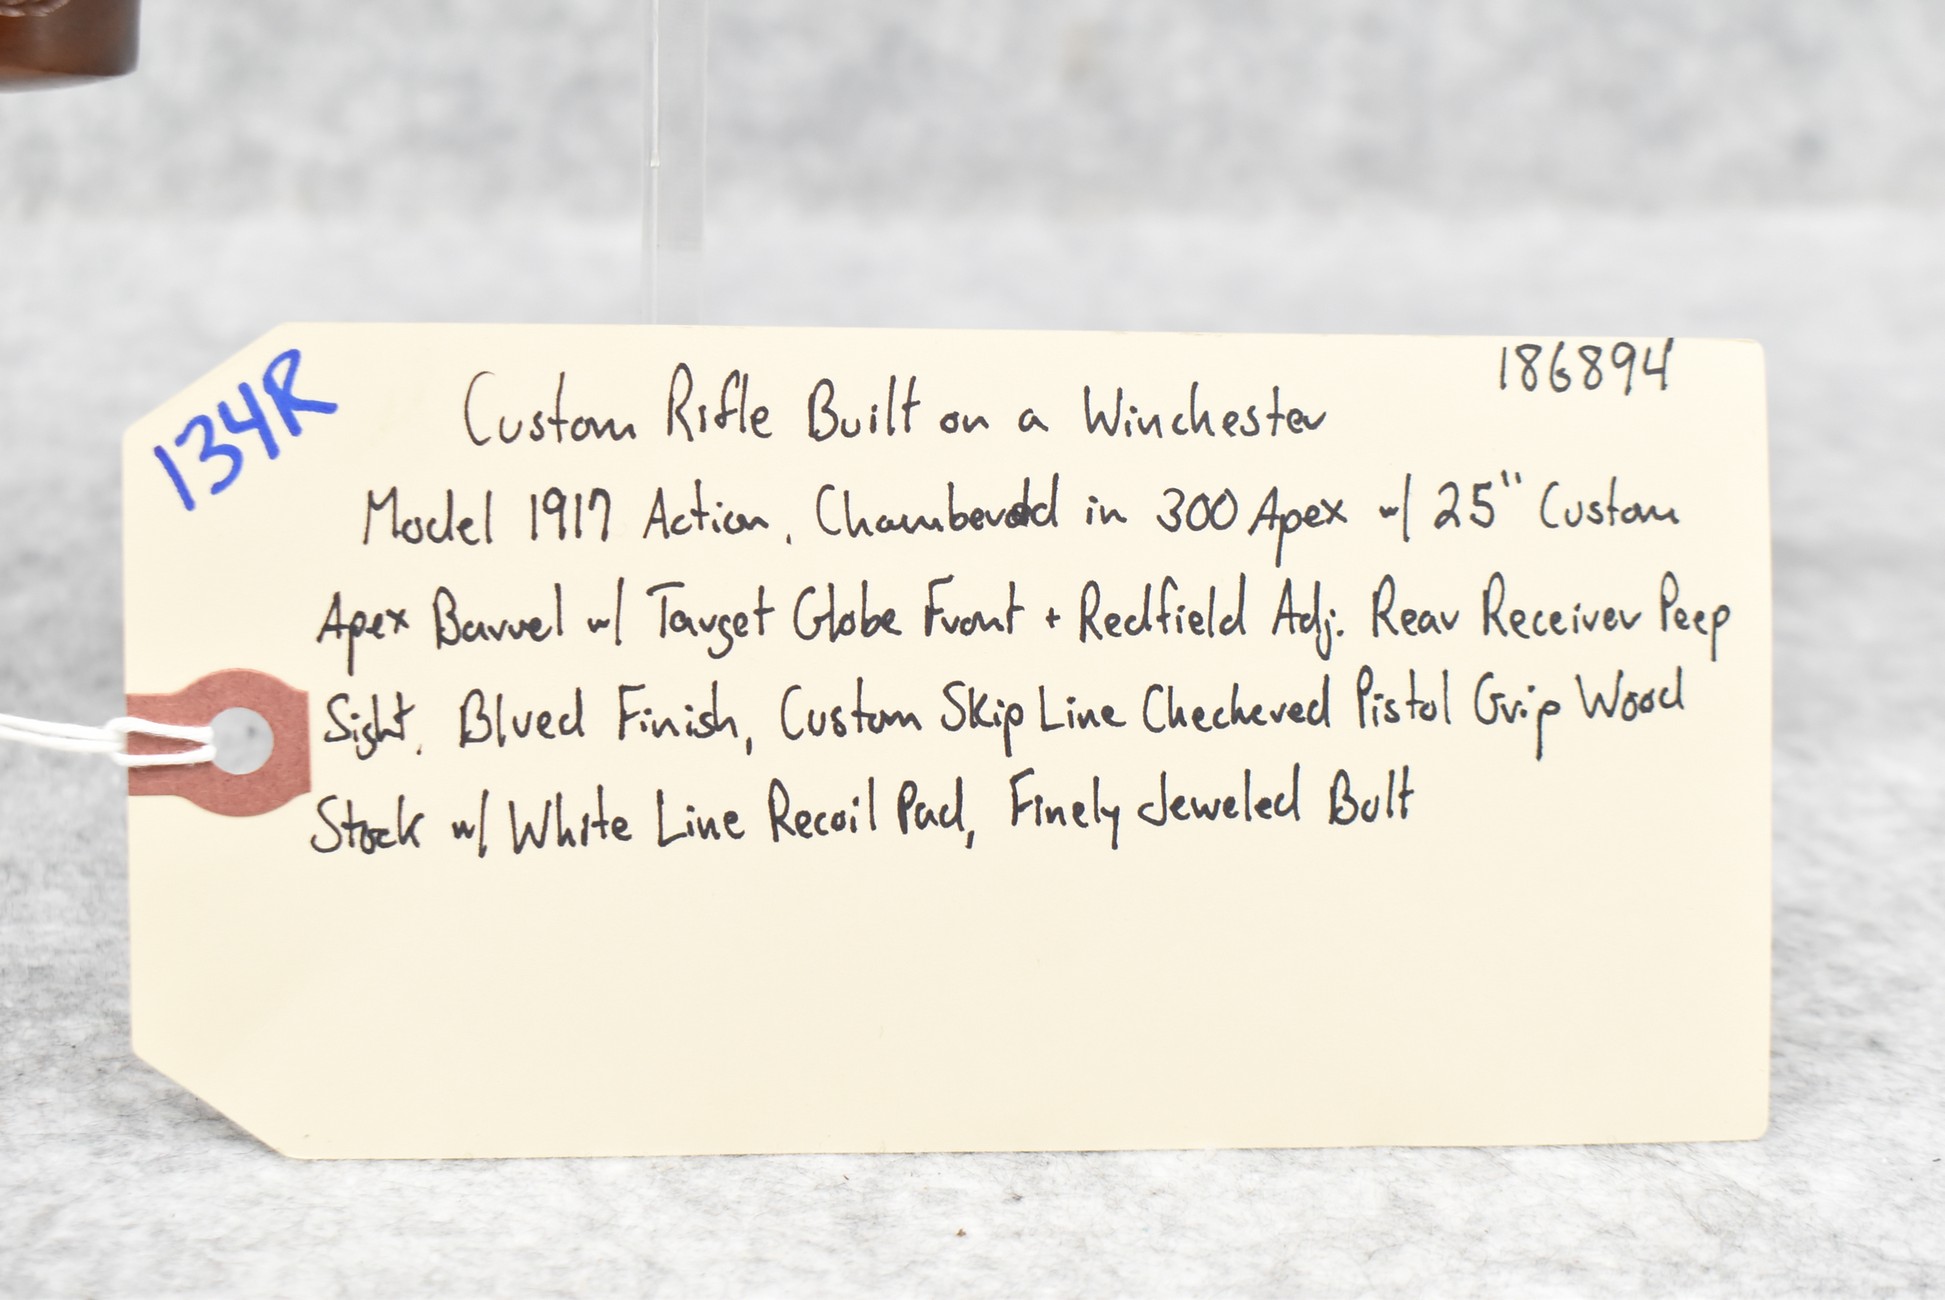 134R
186894
Custom Rifle Built on a Winchester
Model 1917 Action, Chambered in 300 Apex w/ 25" Custom
Apex Barrel w/ Target Globe Front + Redfield Adj. Rear Receiver Peep
Sight, Blued Finish, Custom Skip Line Checkered Pistol Grip Wood
Stock w/ White Line Recoil Pad, Finely Jeweled Bolt